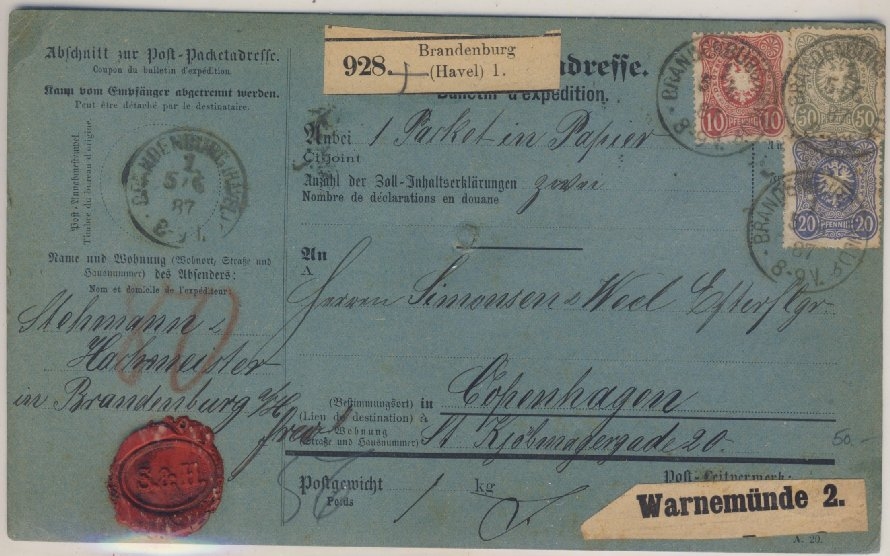 Abschnitt zur Post-Packetadresse.
Coupon du bulletin d'expédition.
Kann vom Empfänger abgetrennt werden.
Peut être détaché par le destinataire.
Post-Ausgabestempel.
Timbre du bureau d'origine.
BRANDENBURG (HAVEL)
1
5/6
87
8-9 V.
Name und Wohnung (Wohnort, Straße und
Hausnummer) des Absenders:
Nom et domicile de l'expéditeur:
Stehmann &
Hachmeister
in Brandenburg a/H.
80
S & H.
928.
Brandenburg
(Havel) 1.
adresse.
Bulletin d'expédition.
Anbei 1 Packet in Papier
Ci-joint
Anzahl der Zoll-Inhaltserklärungen zwei
Nombre de déclarations en douane
An
A
Herren Simonsen & Weel Efterflgr.
(Bestimmungsort) in Copenhagen
(Lieu de destination) à
Wohnung
(Straße und Hausnummer)
St Kjöbmagergade 20.
50.-
Postgewicht 1 kg
Poids
Post-Leitvermerk:
Warnemünde 2.
A. 20.
10 PFENNIG 10
50 PFENNIG 50
20 PFENNIG 20
BRANDENBURG
BRANDENBURG
BRANDENBURG
87
8-9 V.